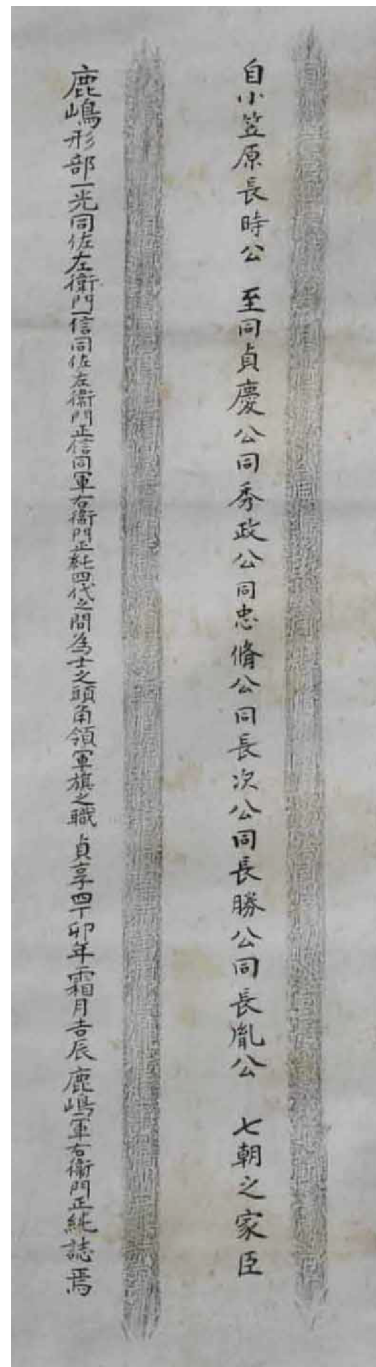 自小笠原長時公　至同貞慶公同秀政公同忠脩公同長次公同長勝公同長胤公　七朝之家臣
鹿嶋形部一光同佐左衛門一信同佐左衛門正信同軍右衛門正純四代之間為士之頭角領軍旗之職　貞享四丁卯年霜月吉辰　鹿嶋軍右衛門正純誌焉